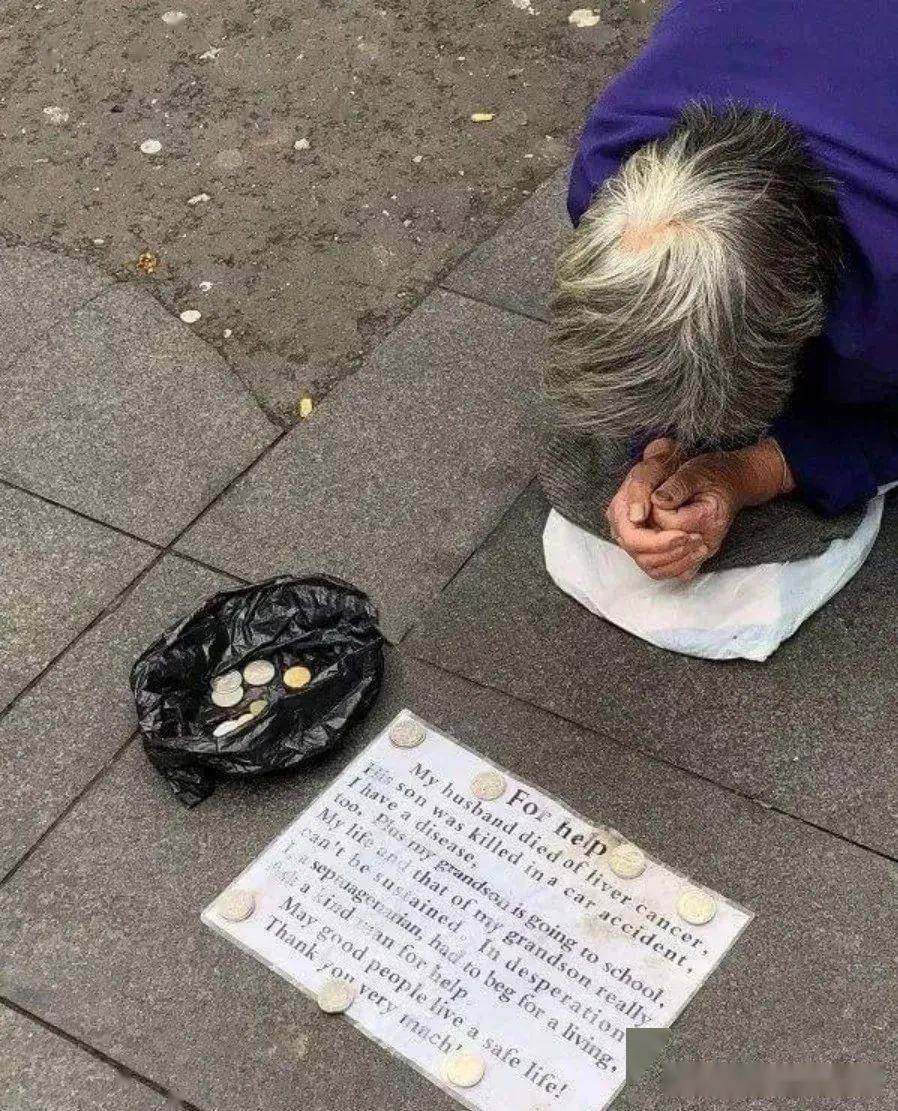 For help
My husband died of liver cancer,
His son was killed in a car accident,
I have a disease,
too. Plus my grandson is going to school,
My life and that of my grandson really
can't be sustained. In desperation
I, a septuagenarian, had to beg for a living,
a kind man for help
May good people live a safe life!
Thank you very much!